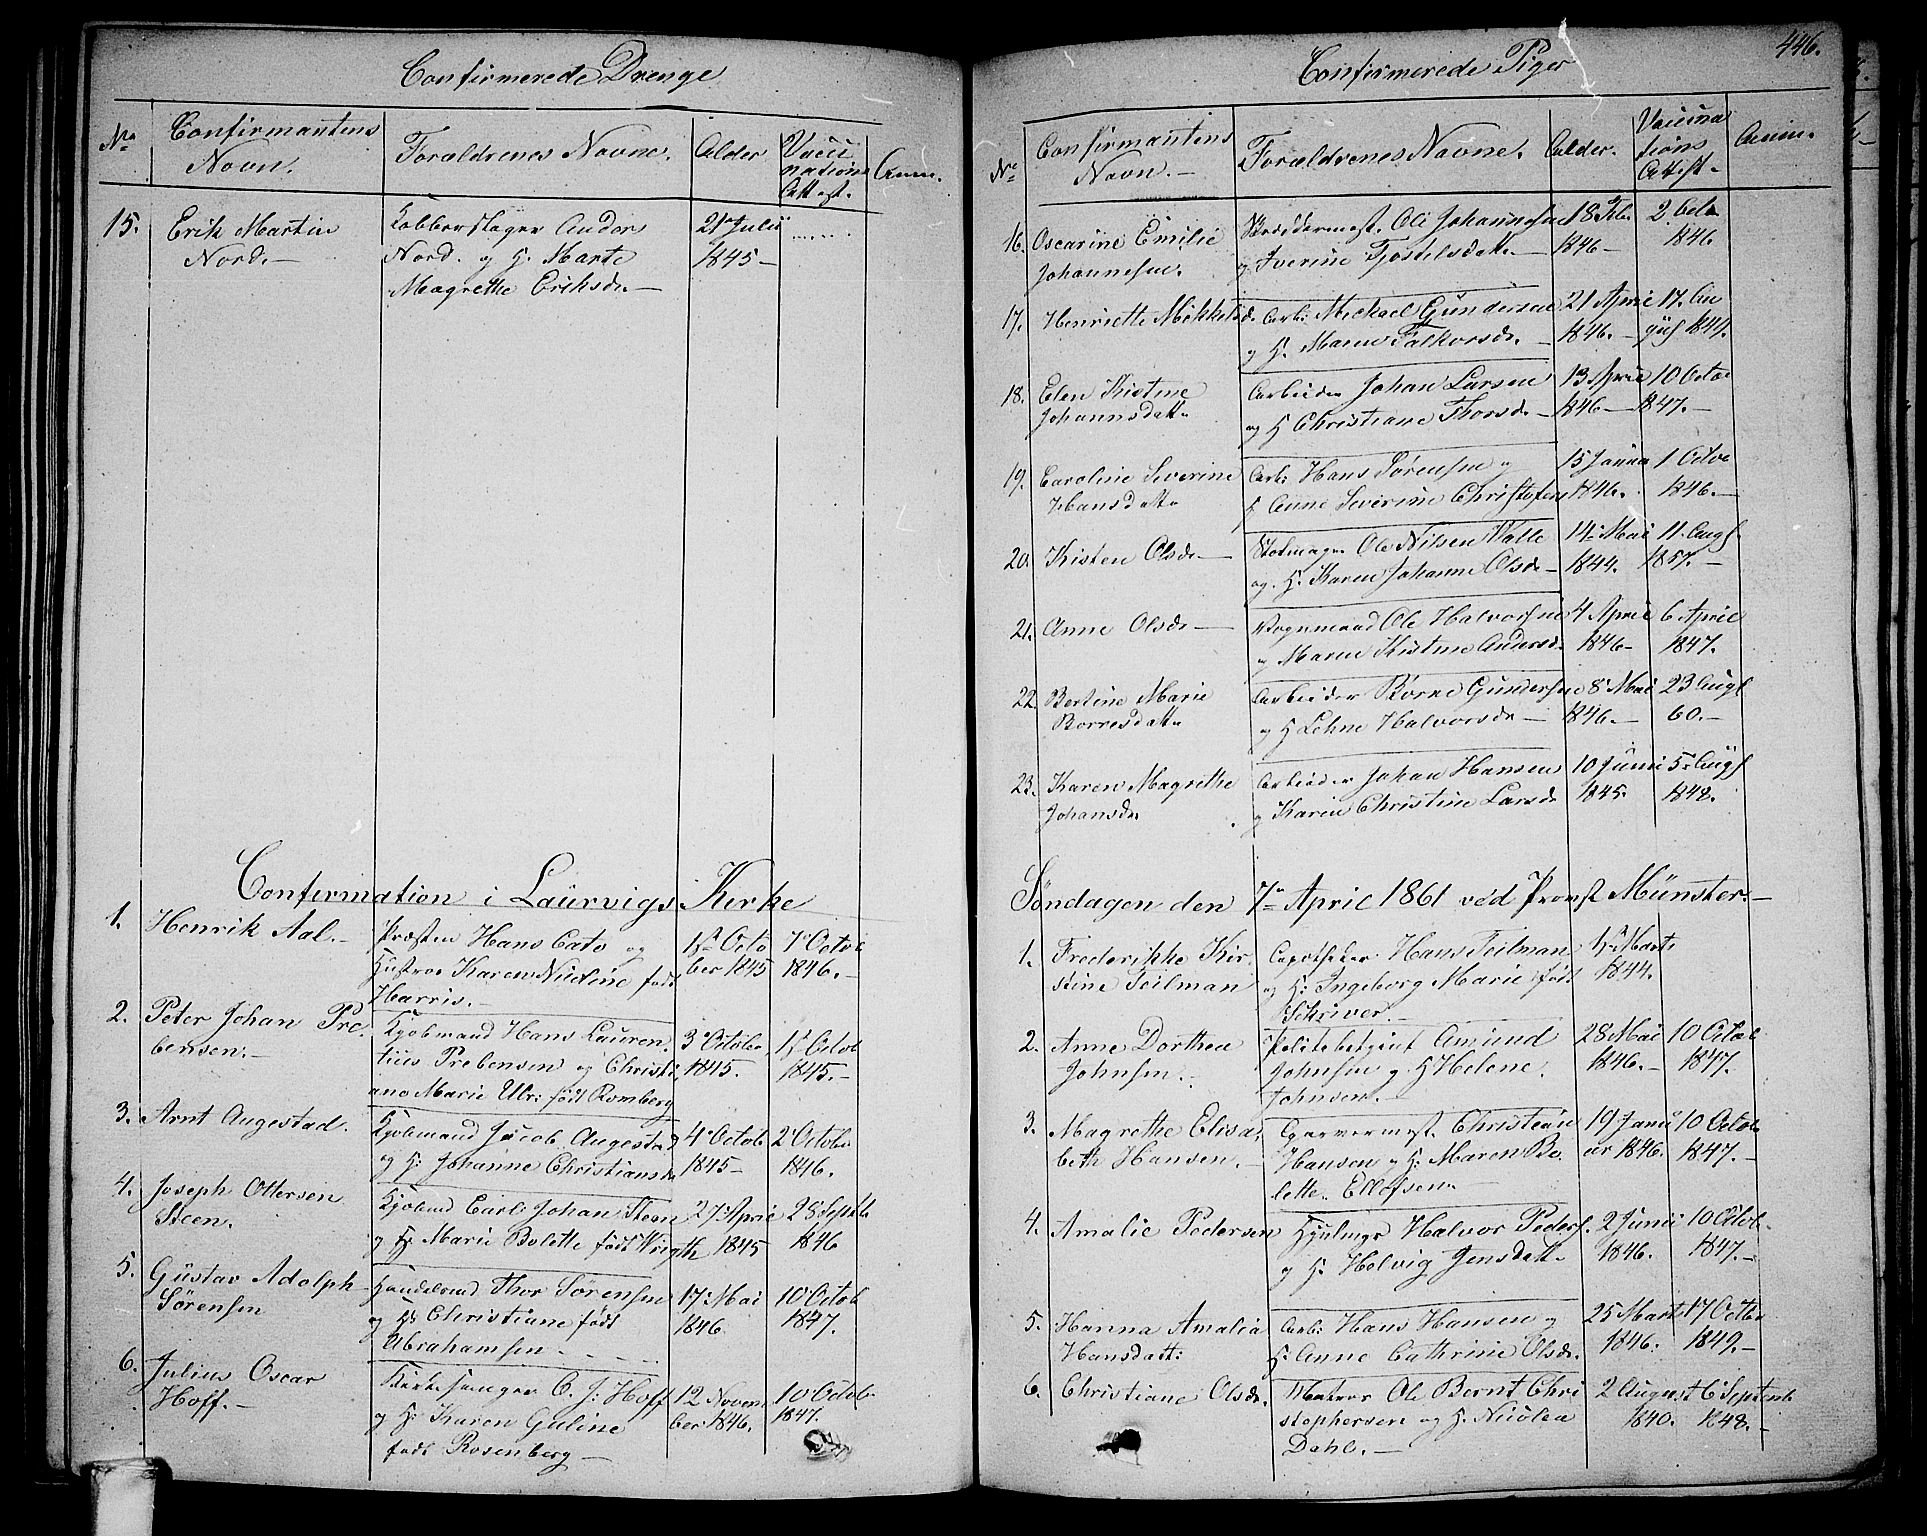 Confirmerede Drenge
No
Confirmantens
Navn.
Forældrenes Navne.
Alder
Vacci
nations
Attest.
Anm.
15.
Erik Martin
Nord. —
Kobberslager Andor
Nord. og H. Marte
Magrethe Eriksdr. —
21 Julii
1845 —
Confirmation i Laurvigs Kirke
1.
Henrik Aal. —
Præsten Hans Cato og
Hustroe Karen Nicline født
Harris. —
1st Octo
ber 1845
7 Octob
1846. —
2.
Peter Johan Pre
bensen. —
Kjøbmand Hans Lauren
tius Prebensen og Christi
ane Marie Ulr: født Romberg
3 Octobr
1845.
1st Octob
1845. —
3.
Arnt Augestad.
Kjøbmand Jacob Augestad
og H. Johanne Christiansdr
4 Octob
1845 —
2 Octobr
1846.
4.
Joseph Ottersen
Steen.
Kjøbmd Carl Johan Steen
og H: Marie Bolette født Wrigth
27 Aprie
1845
28 Septb
1846
5.
Gustav Adolph
Sørensen
Handelsmd Thor Sørensen
og H: Christiane født
Abrahamsen
17 Mai
1846
10 Octob
1847.
6.
Julius Oscar
Hoff. —
Kirkesanger C. J: Hoff
og H: Karen Guline
født Rosenberg —
12 Novem
ber 1846.
10 Octob
1847.
Confirmerede Piger
446.
No
Confirmantens
Navn. —
Forældrenes Navne.
Alder.
Vaccina
tions
Attest.
Anm.
16.
Oscarine Emilie
Johannesen.
Skræddermest. Ole Johannesen
og Iverine Tjostelsdatt. —
18 Feb.
1846 —
2 Octo
1846
17.
Henriette Mikkelsd.
Arb: Mickael Gundersen
og H. Maren Falkorsdr. —
21 Aprie
1846. —
17. Au
gust 1847.
18.
Elen Kistine
Johannsdatt.
Arbeider Johan Larsen
og H Christiane Thorsdr —
13 Aprie
1846 —
10 Octo
1847. —
19.
Caroline Severine
Hansdatt.
Arb: Hans Sørensen og
H Anne Severine Christofers
15 Janua
1846.
1 Octo
1846. —
20.
Kisten Olsdr —
Ole Nilsen Valle
og. H. Karen Johanne Olsdr —
14 Mai
1844.
11. Augf.
1857. —
21.
Anne Olsdr —
Vognmand Ole Halvorsen
og Maren Kistine Andersd.
4 Aprie
1846 —
6 April
1847.
22.
Bertine Marie
Borresdatt.
Arbeider Børre Gundersen
og H Lehne Halvorsdr —
8 Mai
1846. —
23 Augf
60. —
23.
Karen Magrethe
Johansdr
Arbeider Johan Hansen
og Karen Christine Larsdr
10 Junii
1845.
5 Augf
1848.
Søndagen den 7de April 1861 ved Provst Münster. —
1.
Frederikke Kir
stine Teilman
Apotheker Hans Teilman
og H: Ingeborg Marie født
Schriver. —
1st Marts
1844.
2.
Anne Dorthea
Johnsen. —
Politebetjent Amund
Johnsen og H Helene.
Johnsen. —
28 Mai
1846. —
10 Octob
1847.
3.
Magrethe Elisa
beth Hansen. —
Garvermest. Christian
Hansen og H: Maren Bo
lette. Ellefsen. —
19 Janu
ar 1846.
10 Octob
1847. —
4.
Amalie Pedersen
Halvor Peders.
og H. Helvig Jensdatt.
2 Junii
1846.
10 Octob.
1847. —
5.
Hanna Amalia
Hansdatt:
Arb: Hans Hansen og
H: Anne Cathrine Olsdr.
25 Marts
1846.
17 Octbr
1849. —
6.
Christiane Olsdr.
Matros Ole Bernt Chri
stophersen og H. Nicolea
Dahl. —
2 August
1840.
6 Septemb
1848. —